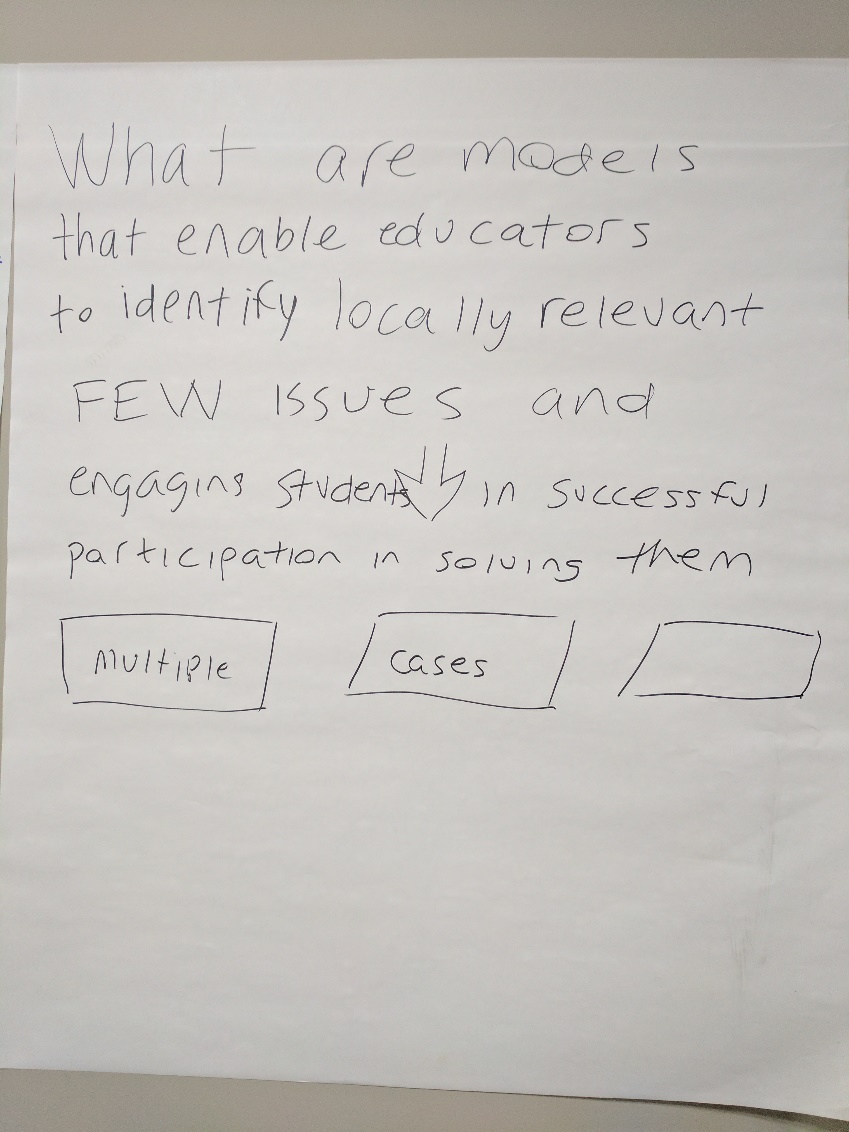 What are models
that enable educators
to identify locally relevant
FEW issues and
engaging students in successful
participation in solving them
multiple cases